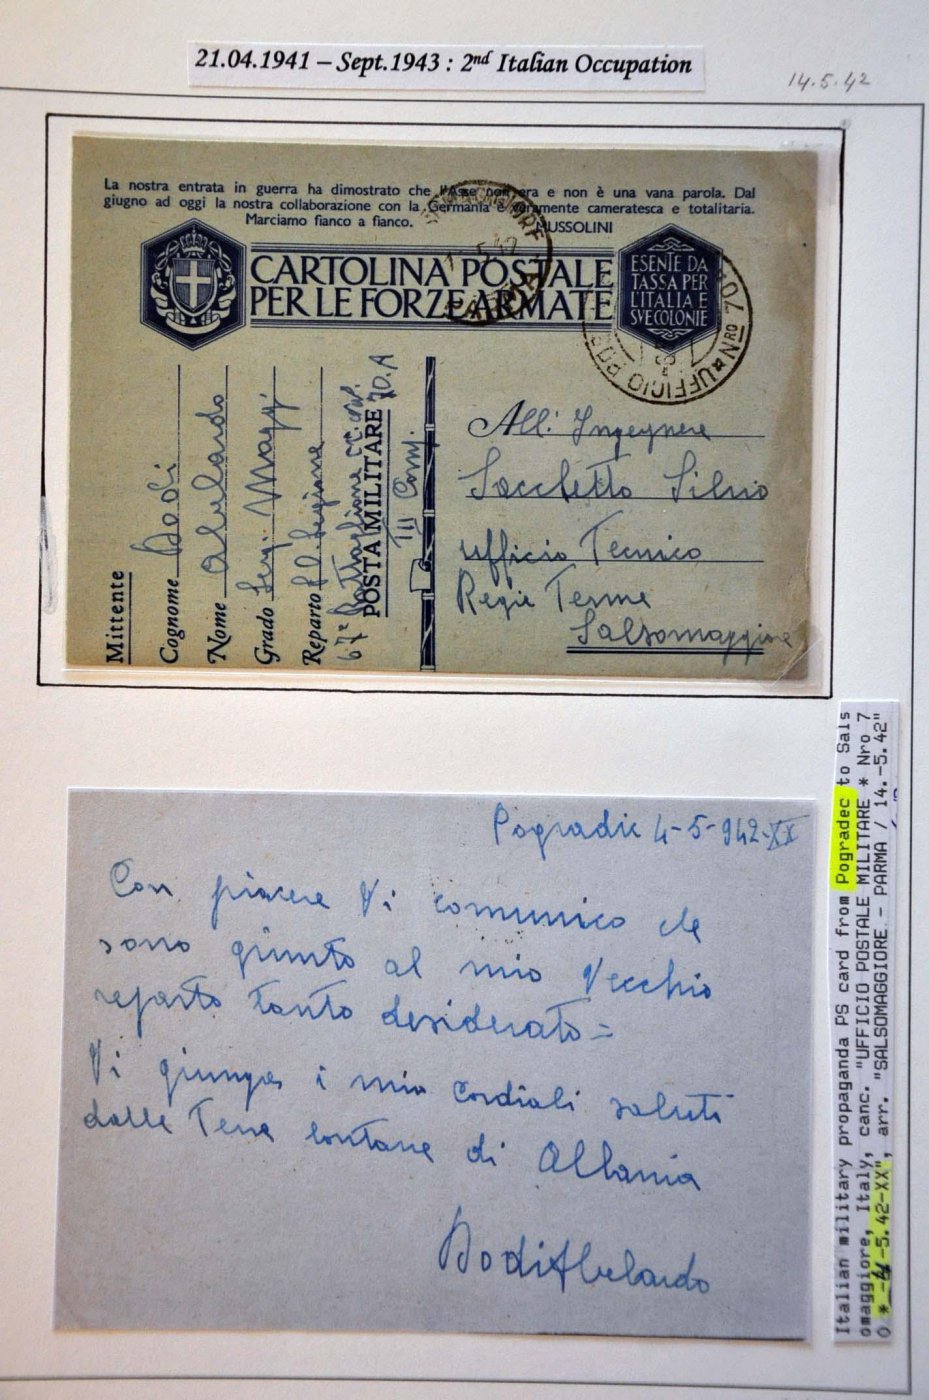 21.04.1941 – Sept.1943 : 2nd Italian Occupation
14.5.42
La nostra entrata in guerra ha dimostrato che l'Asse non era e non è una vana parola. Dal
giugno ad oggi la nostra collaborazione con la Germania è veramente cameratesca e totalitaria.
Marciamo fianco a fianco. MUSSOLINI
CARTOLINA POSTALE
PER LE FORZE ARMATE
ESENTE DA
TASSA PER
L'ITALIA E
SVE COLONIE
UFFICIO POS NRO 70
Mittente
Cognome Dodi
Nome Abelardo
Grado Serg. Magg.
Reparto
67° Battaglione CC.
POSTA MILITARE 70.A
III Comp.
All: Ingegnere
Sacchetto Silvio
Ufficio Tecnico
Regie Terme
Salsomaggiore
Pogradic 4-5-942-XX
Con piacere Vi comunico che
sono giunto al mio Vecchio
reparto tanto desiderato=
Vi giunga i mio cordiali saluti
dalle Terre lontane di Albania
Dodi Abelardo
Italian military propaganda PS card from Pogradec to Sals
omaggiore, Italy, canc. "UFFICIO POSTALE MILITARE * Nro 7
0 * -4-5.42-XX", arr. "SALSOMAGGIORE - PARMA / 14.-5.42"